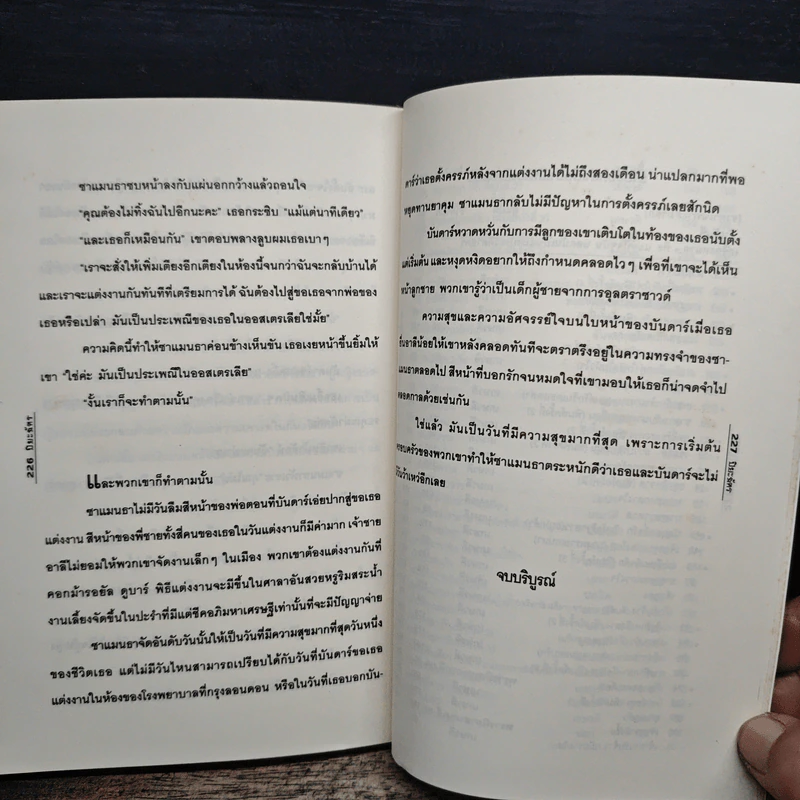 ซาแมนธาซบหน้าลงกับแผ่นอกกว้างแล้วถอนใจ
"คุณต้องไม่ทิ้งฉันไปอีกนะคะ" เธอกระซิบ "แม้แต่นาทีเดียว"
"และเธอก็เหมือนกัน" เขาตอบพลางลูบผมเธอเบาๆ
"เราจะสั่งให้เพิ่มเตียงอีกเตียงในห้องนี้จนกว่าฉันจะกลับบ้านได้
และเราจะแต่งงานกันทันทีที่เตรียมการได้ ฉันต้องไปสู่ขอเธอจากพ่อของ
เธอหรือเปล่า มันเป็นประเพณีของเธอในออสเตรเลียใช่มั้ย"
ความคิดนี้ทำให้ซาแมนธาค่อนข้างเห็นขัน เธอเงยหน้าขึ้นยิ้มให้
เขา "ใช่ค่ะ มันเป็นประเพณีในออสเตรเลีย"
"งั้นเราก็จะทำตามนั้น"
และพวกเขาก็ทำตามนั้น
ซาแมนธาไม่มีวันลืมสีหน้าของพ่อตอนที่บันดาร์เอ่ยปากสู่ขอเธอ
แต่งงาน สีหน้าของพี่ชายทั้งสี่คนของเธอในวันแต่งงานก็มีค่ามาก เจ้าชาย
อาลีไม่ยอมให้พวกเขาจัดงานเล็กๆ ในเมือง พวกเขาต้องแต่งงานกันที่
คอกม้ารอยัล ดูบาร์ พิธีแต่งงานจะมีขึ้นในศาลาอันสวยหรูริมสระน้ำ
งานเลี้ยงจัดขึ้นในปะรำที่มีแต่ชีคอภิมหาเศรษฐีเท่านั้นที่จะมีปัญญาจ่าย
ซาแมนธาจัดอันดับวันนั้นให้เป็นวันที่มีความสุขมากที่สุดวันหนึ่ง
ของชีวิตเธอ แต่ไม่มีวันไหนสามารถเปรียบได้กับวันที่บันดาร์ขอเธอ
แต่งงานในห้องของโรงพยาบาลที่กรุงลอนดอน หรือในวันที่เธอบอกบัน-
226 ปิยะฉัตร
ดาร์ว่าเธอตั้งครรภ์หลังจากแต่งงานได้ไม่ถึงสองเดือน น่าแปลกมากที่พอ
หยุดทานยาคุม ซาแมนธากลับไม่มีปัญหาในการตั้งครรภ์เลยสักนิด
บันดาร์หวาดหวั่นกับการมีลูกของเขาเติบโตในท้องของเธอนับตั้ง
แต่เริ่มต้น และหงุดหงิดอยากให้ถึงกำหนดคลอดไวๆ เพื่อที่เขาจะได้เห็น
หน้าลูกชาย พวกเขารู้ว่าเป็นเด็กผู้ชายจากการอุลตราซาวด์
ความสุขและความอัศจรรย์ใจบนใบหน้าของบันดาร์เมื่อเธอ
ยื่นอาลีน้อยให้เขาหลังคลอดทันทีจะตราตรึงอยู่ในความทรงจำของซา-
แมนธาตลอดไป สีหน้าที่บอกรักจนหมดใจที่เขามอบให้เธอก็น่าจดจำไป
ตลอดกาลด้วยเช่นกัน
ใช่แล้ว มันเป็นวันที่มีความสุขมากที่สุด เพราะการเริ่มต้น
ครอบครัวของพวกเขาทำให้ซาแมนธาตระหนักดีว่าเธอและบันดาร์จะไม่
มีวันว้าเหว่อีกเลย
จบบริบูรณ์
227 ปิยะฉัตร